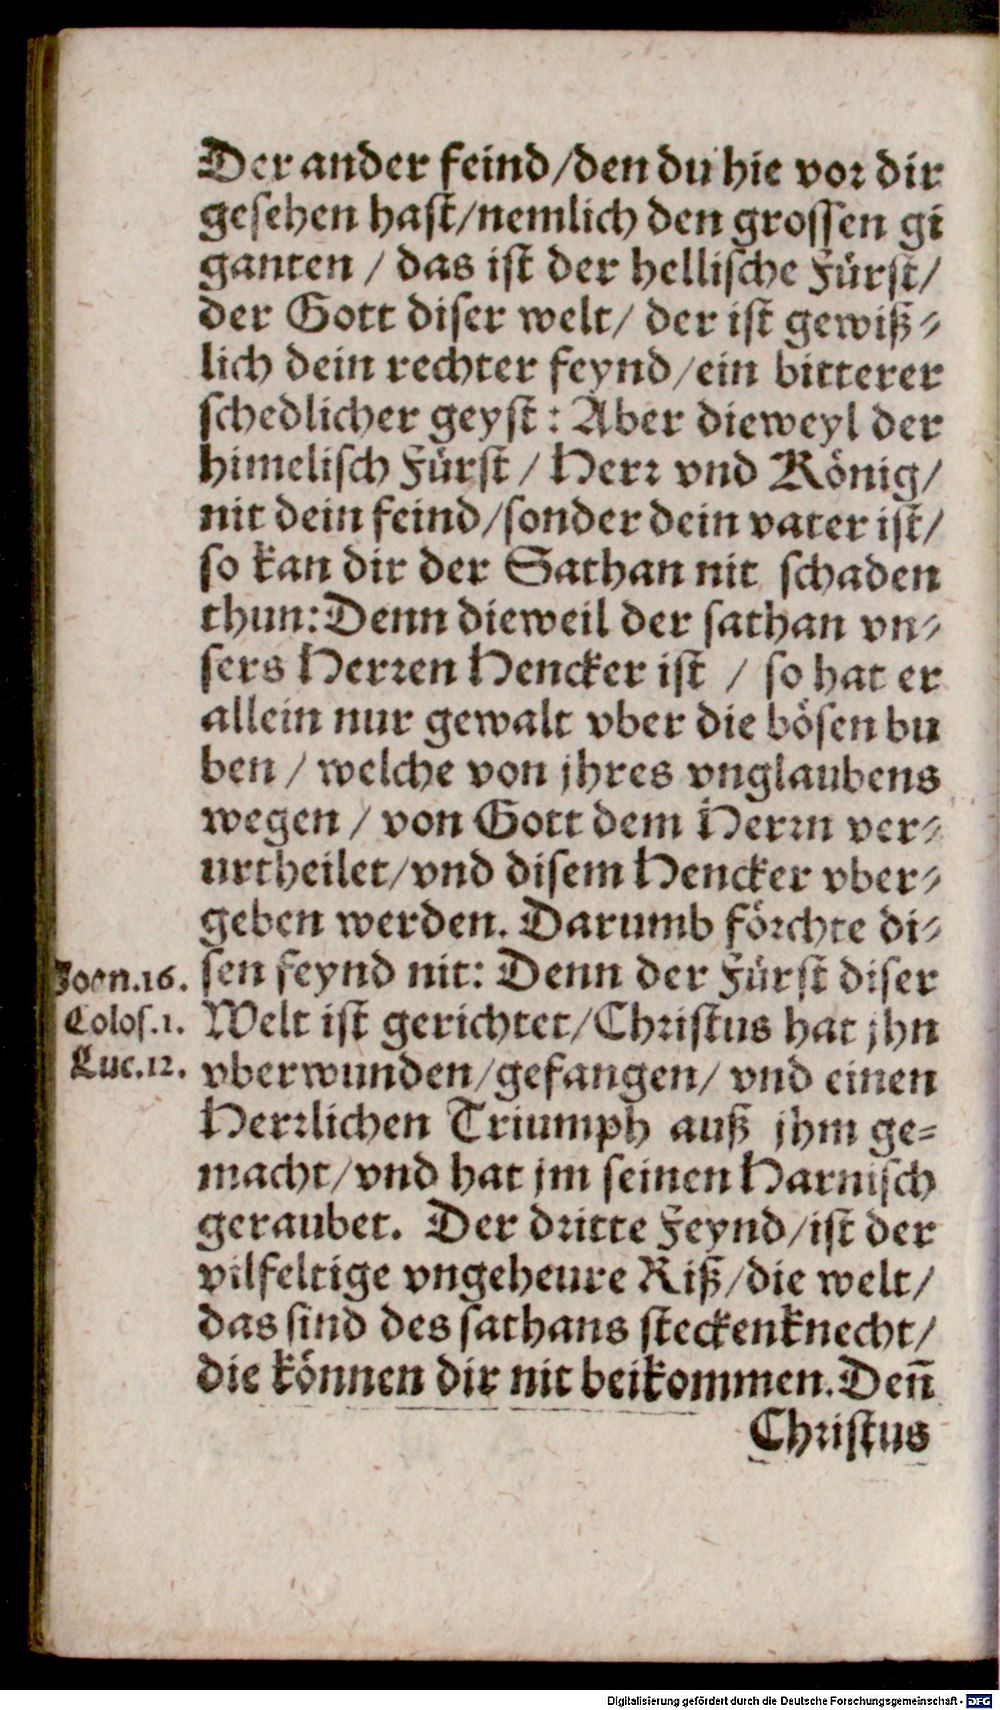 Der ander feind/den du hie vor dir
gesehen hast/nemlich den grossen gi
ganten / das ist der hellische Fürst/
der Gott diser welt/ der ist gewiß-
lich dein rechter feynd/ein bitterer
schedlicher geyst : Aber dieweyl der
himelisch Fürst / Herr vnd König/
nit dein feind/sonder dein vater ist/
so kan dir der Sathan nit schaden
thun: Denn dieweil der sathan vn-
sers Herren Hencker ist / so hat er
allein nur gewalt vber die bösen bu
ben / welche von jhres vnglaubens
wegen / von Gott dem Herrn ver-
urtheilet/vnd disem Hencker vber-
geben werden. Darumb förchte di-
sen feynd nit: Denn der Fürst diser
Welt ist gerichtet/Christus hat jhn
vberwunden/gefangen/ vnd einen
Herrlichen Triumph auß jhm ge=
macht/vnd hat jm seinen Harnisch
geraubet. Der dritte Feynd/ist der
vilfeltige vngeheure Riß/die welt/
das sind des sathans steckenknecht/
die können dir nit beikommen. Deñ
Christus
Joan.16.
Colos.1.
Luc.12.
Digitalisierung gefördert durch die Deutsche Forschungsgemeinschaft - DFG